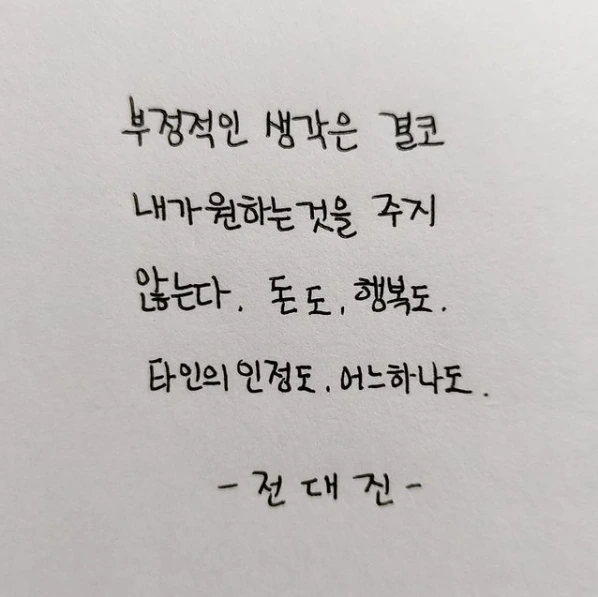 부정적인 생각은 결코
내가 원하는것을 주지
않는다. 돈도, 행복도.
타인의 인정도, 어느하나도.
- 전대진 -